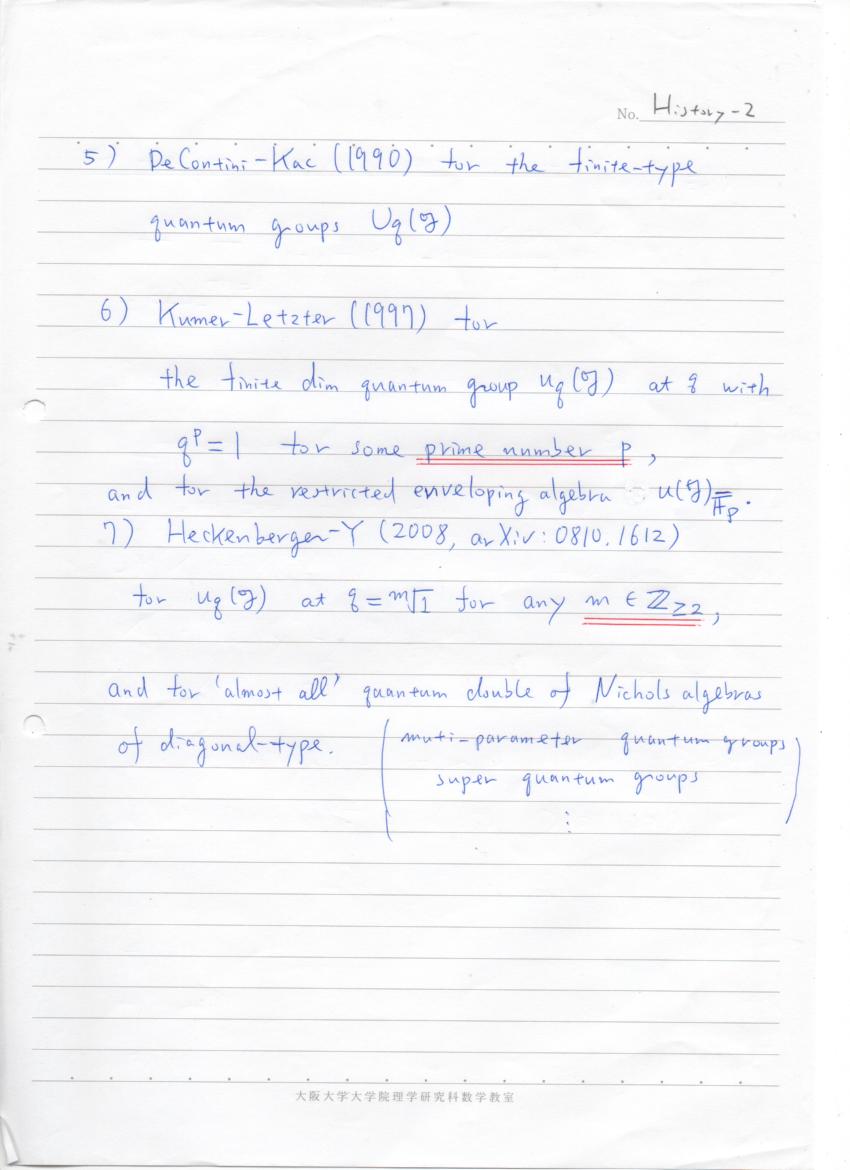 No. History-2
5) DeContini-Kac (1990) for the finite-type
quantum groups Uq(𝔤)
6) Kumer-Letzter (1997) for
the finite dim quantum group uq(𝔤) at q with
q^p = 1 for some prime number p,
and for the restricted enveloping algebra u(𝔤)_𝔽̄p.
7) Heckenberger-Y (2008, arXiv:0810.1612)
for uq(𝔤) at q = m√1 for any m ∈ ℤ≥2,
and for 'almost all' quantum double of Nichols algebras
of diagonal-type. ( muti-parameter quantum groups
super quantum groups
⋮ )
大阪大学大学院理学研究科数学教室